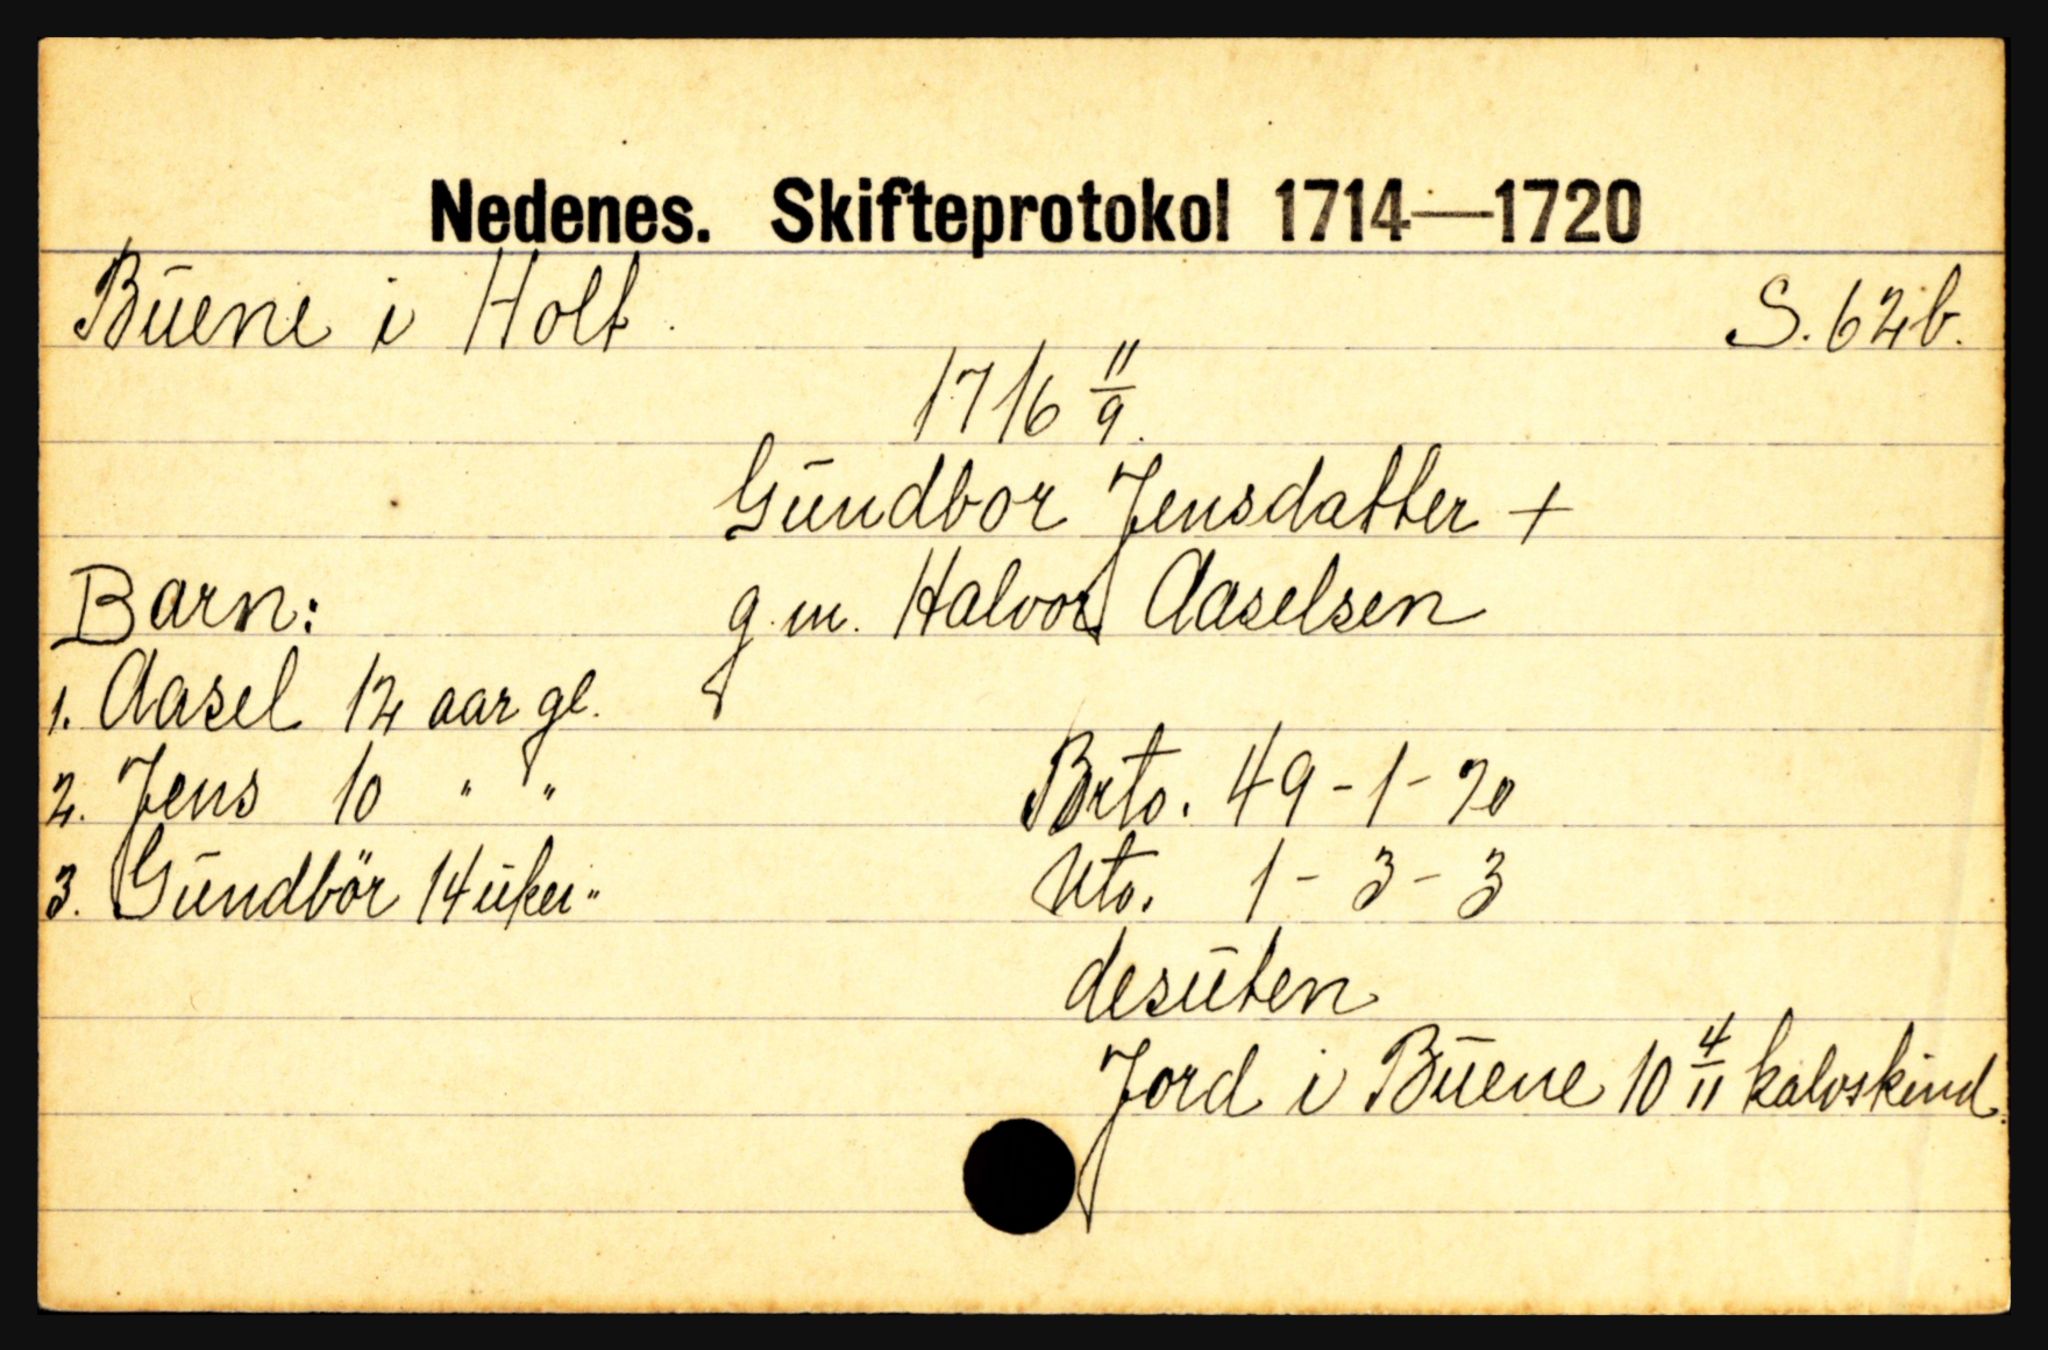 Nedenes. Skifteprotokol 1714—1720
Buene i Holt.
S. 62b.
1716 11/9.
Gundbor Jensdatter +
g. m. Halvor Aaselsen
Barn:
1. Aasel 12 aar gl.
2. Jens 10 " "
3. Gundbör 14 uker "
Brto. 49 - 1 - 20
Nto. 1 - 3 - 3
desuten
Jord i Buene 10 4/11 kalvskind.